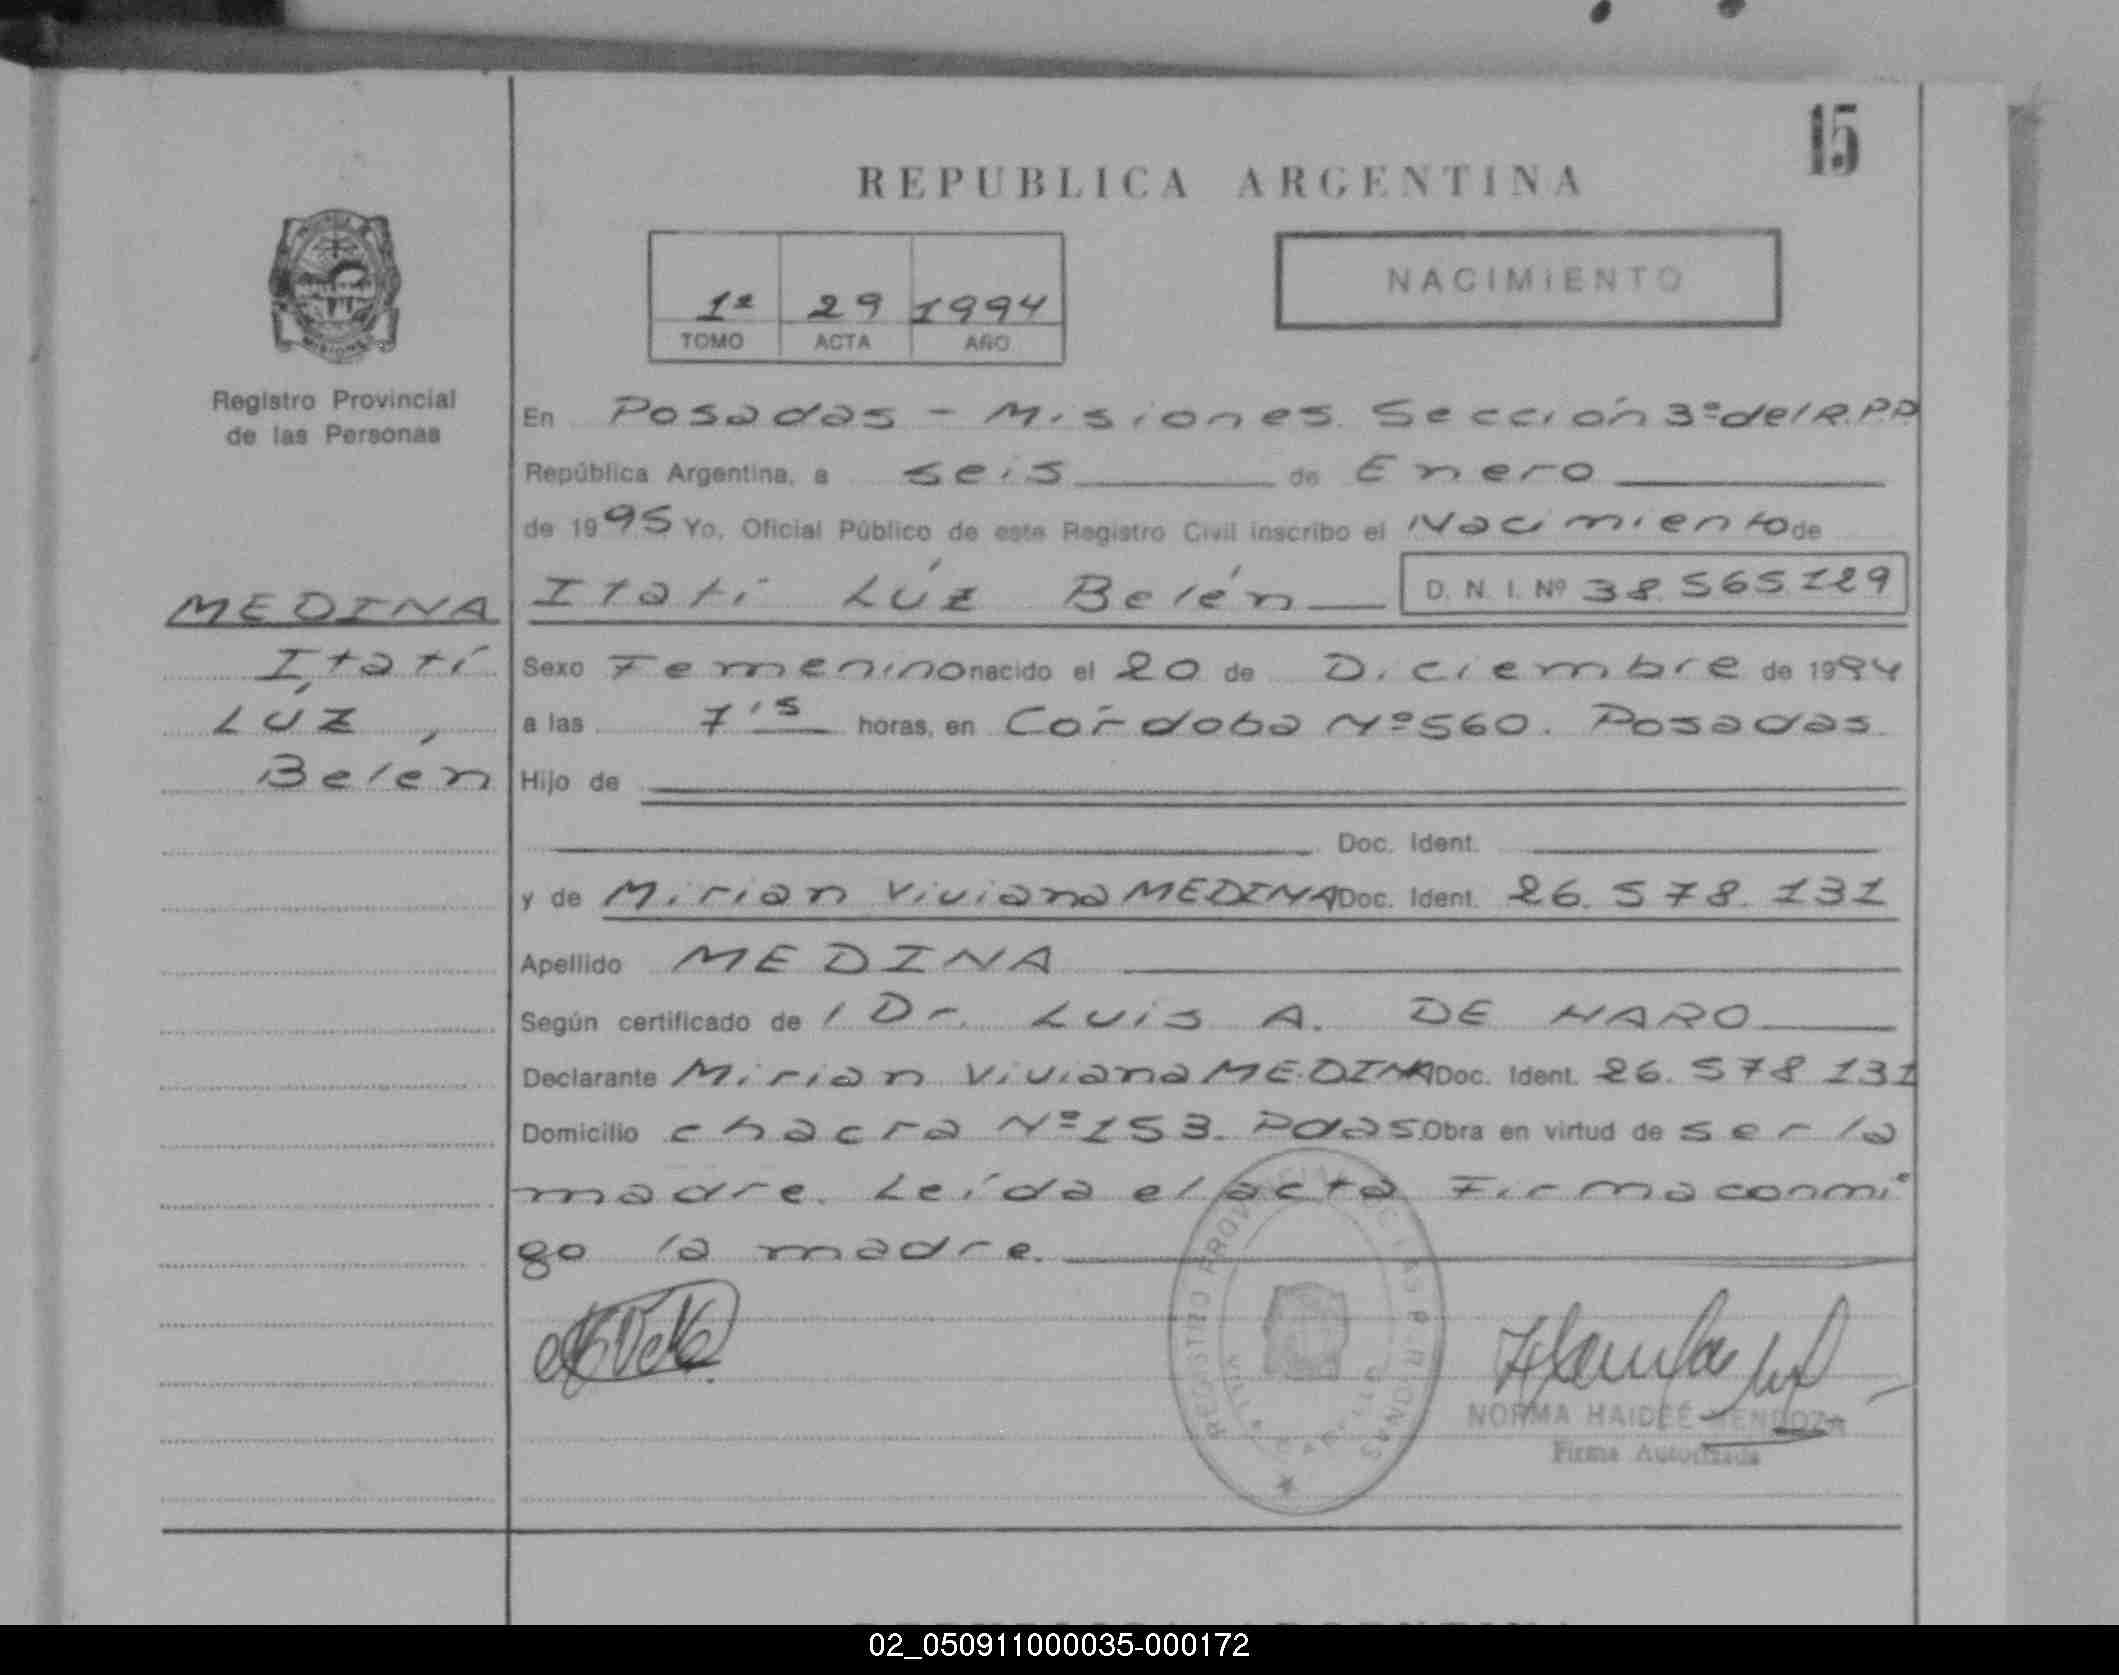 15
REPUBLICA ARGENTINA
NACIMIENTO
1ª 29 1994
TOMO ACTA AÑO
Registro Provincial
de las Personas
MEDINA
Itatí
Lúz
Belén
En Posadas - Misiones. Sección 3ª del R.P.P.
República Argentina, a seis de Enero
de 1995 Yo, Oficial Público de este Registro Civil inscribo el Nacimiento de
Itatí Lúz Belén D. N. I. Nº 38.565.129
Sexo Femenino nacido el 20 de Diciembre de 1994
a las 7'15 horas, en Córdoba Nº 560. Posadas.
Hijo de
Doc. Ident.
y de Mirian Viviana MEDINA Doc. Ident. 26.578.131
Apellido MEDINA
Según certificado de l Dr. Luis A. DE HARO
Declarante Mirian Viviana MEDINA Doc. Ident. 26.578 131
Domicilio chacra Nº 153. Pdas. Obra en virtud de ser la
madre. Leída el acta Firma conmi
go la madre.
REGISTRO PROVINCIAL DE LAS PERSONAS
NORMA HAIDEÉ MENDOZA
Firma Autorizada
02_050911000035-000172